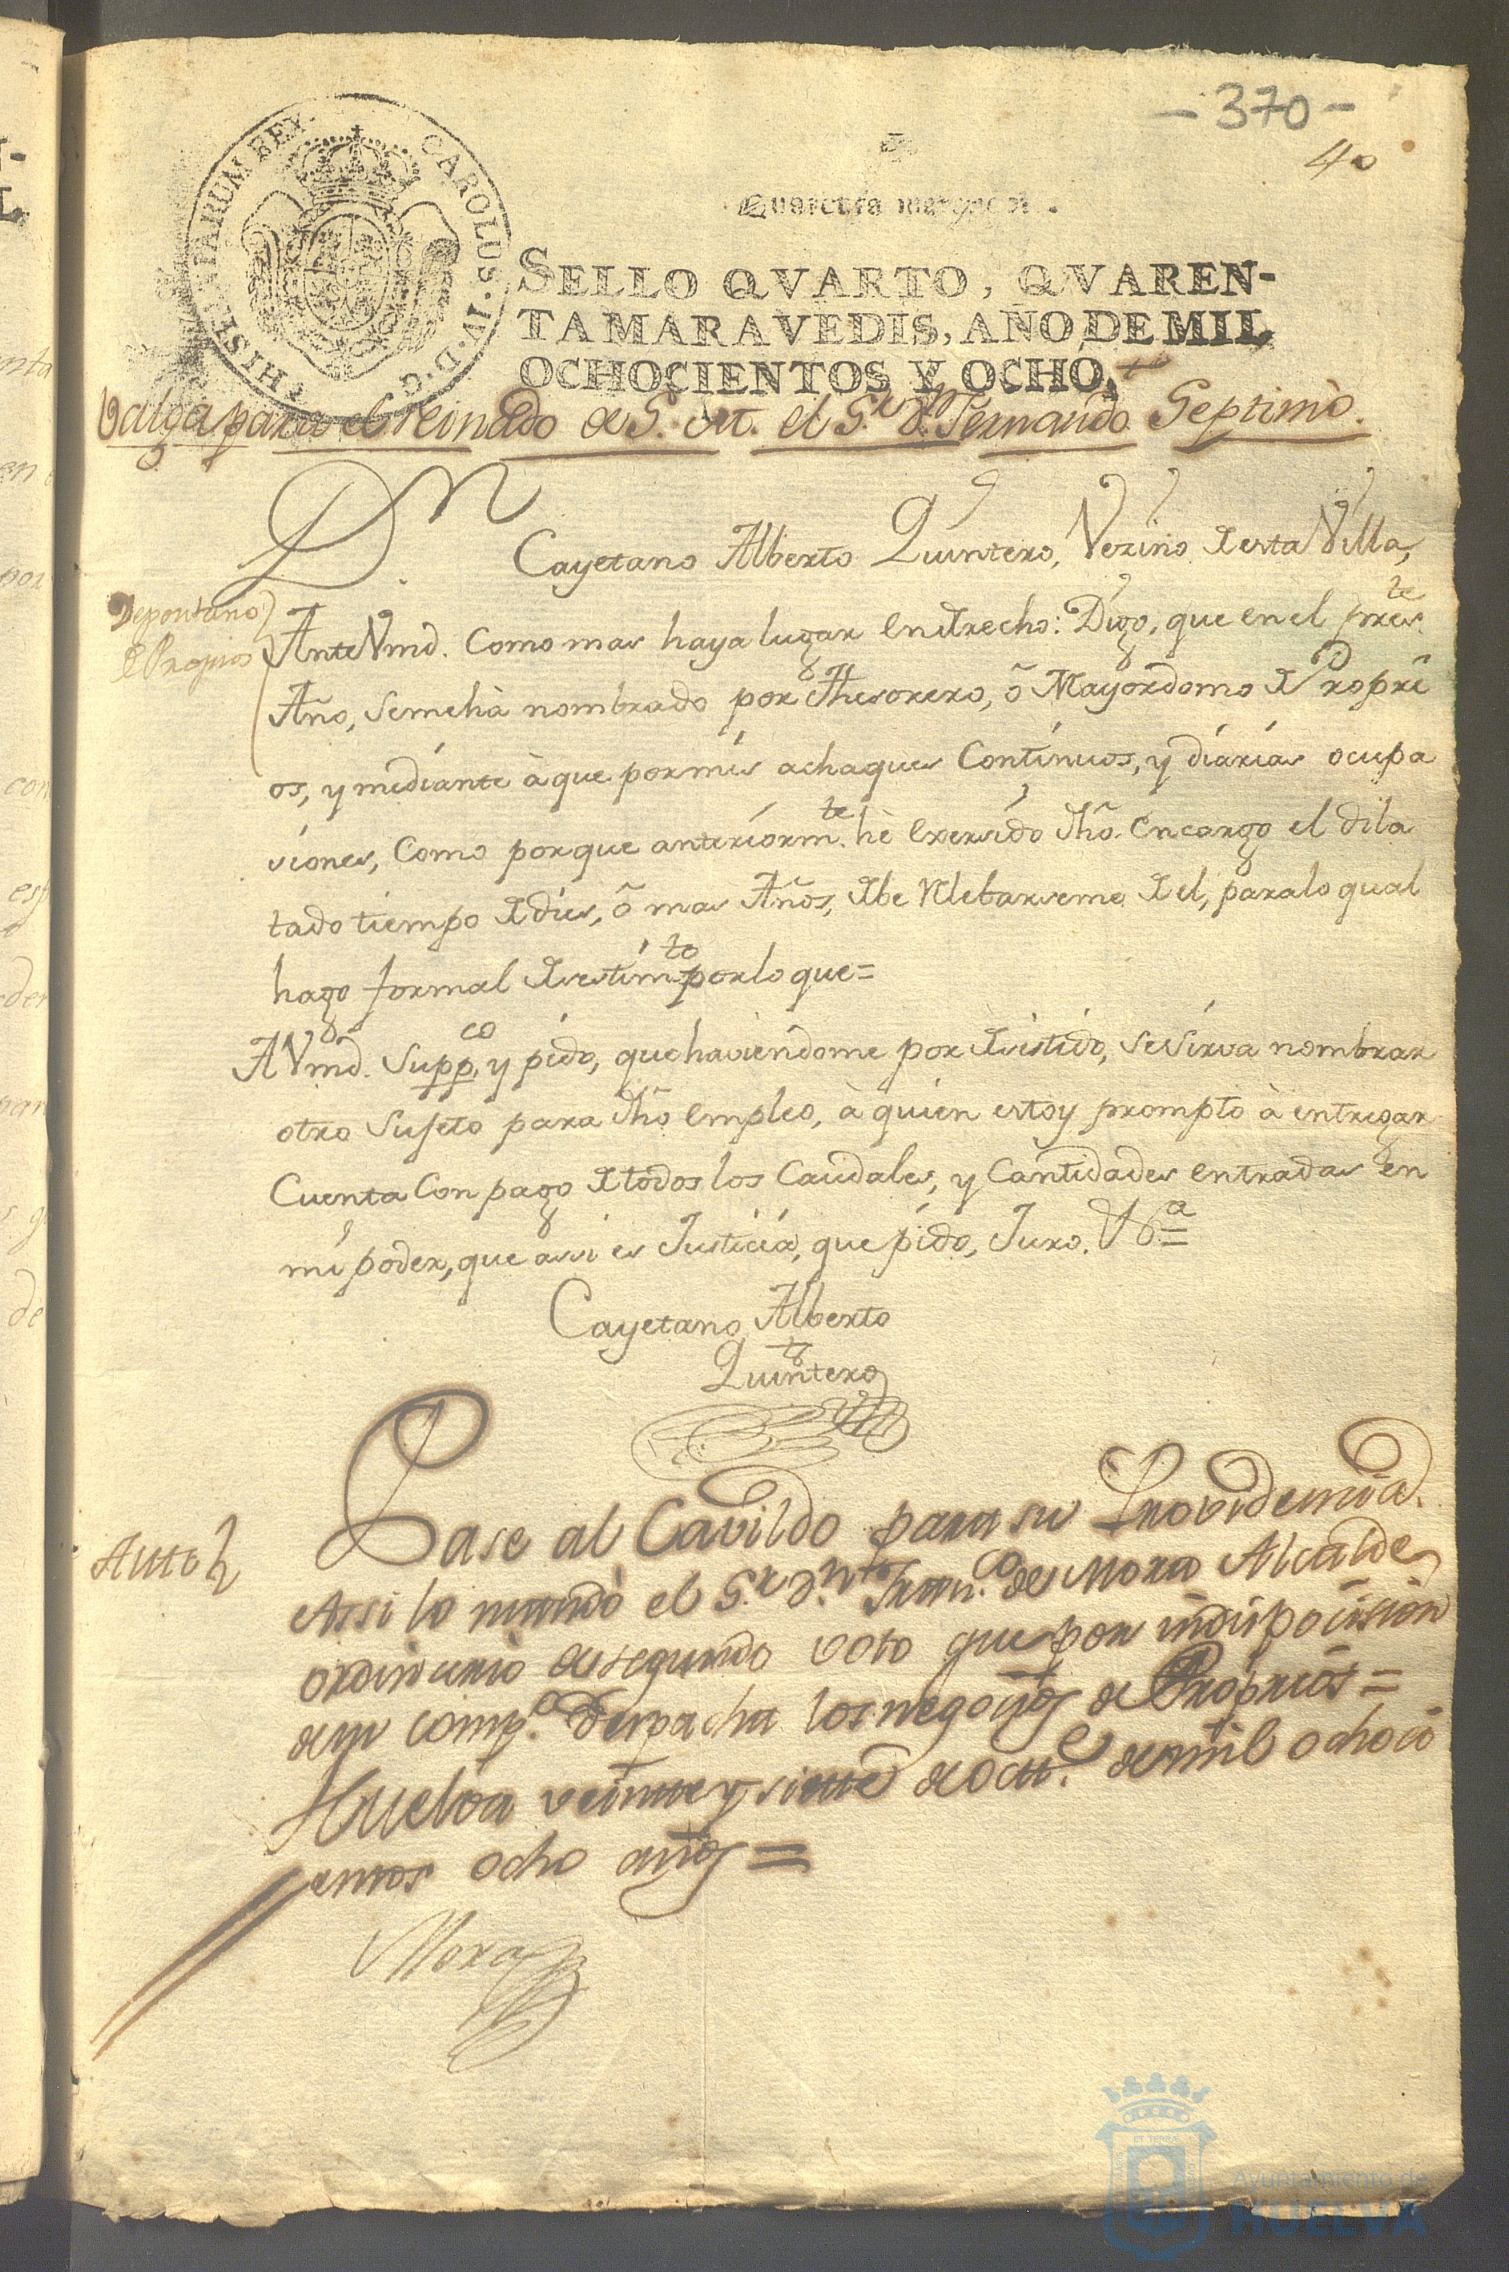 - 370 -
40
CAROLUS · IV · D · G · HISPANIARUM REX ·
Quarenta maravedis.
SELLO QVARTO, QVAREN-
TA MARAVEDIS, AÑO DE MIL
OCHOCIENTOS Y OCHO.
Valga para el reinado de S. M. el S.r D.n Fernando Septimo.
D.n Cayetano Alberto Quintero, Vezino desta Villa,
Deposittario
de Propios
Ante Vmd. Como mas haya lugar en drecho: Digo, que en el pres.te
Año, se me hà nombrado por Thesorero, ô Mayordomo de Propri
os, y mediante à que por mis achaques Continuos, y diarias ocupa
siones, Como porque anteriorm.te hè exersido dho. encargo el dila
tado tiempo de dies, ô mas Años, debe relebarseme de el, para lo qual
hago formal desistim.to por lo que=
A Vmd. Supp.co y pido, que haviendome por desistido, se sirva nombrar
otro Sujeto para dho empleo, à quien estoy prompto à entregar
Cuenta Con pago de todos los Caudales, y Cantidades entradas en
mi poder, que assi es Justicia, que pido, Juro, V.a=
Cayetano Alberto
Quintero
Auto
Pase al Cavildo para su Providencia.
Assi lo mandò el S.r D.n Fran.co de Mora Alcalde
ordinario de segundo voto que por indisposision
de su comp.o despacha los negocios de Proprios=
Huelva veintte y siette de Octt.e de mil ochoci
entos ocho años=
Mora
Ayuntamiento de
HUELVA